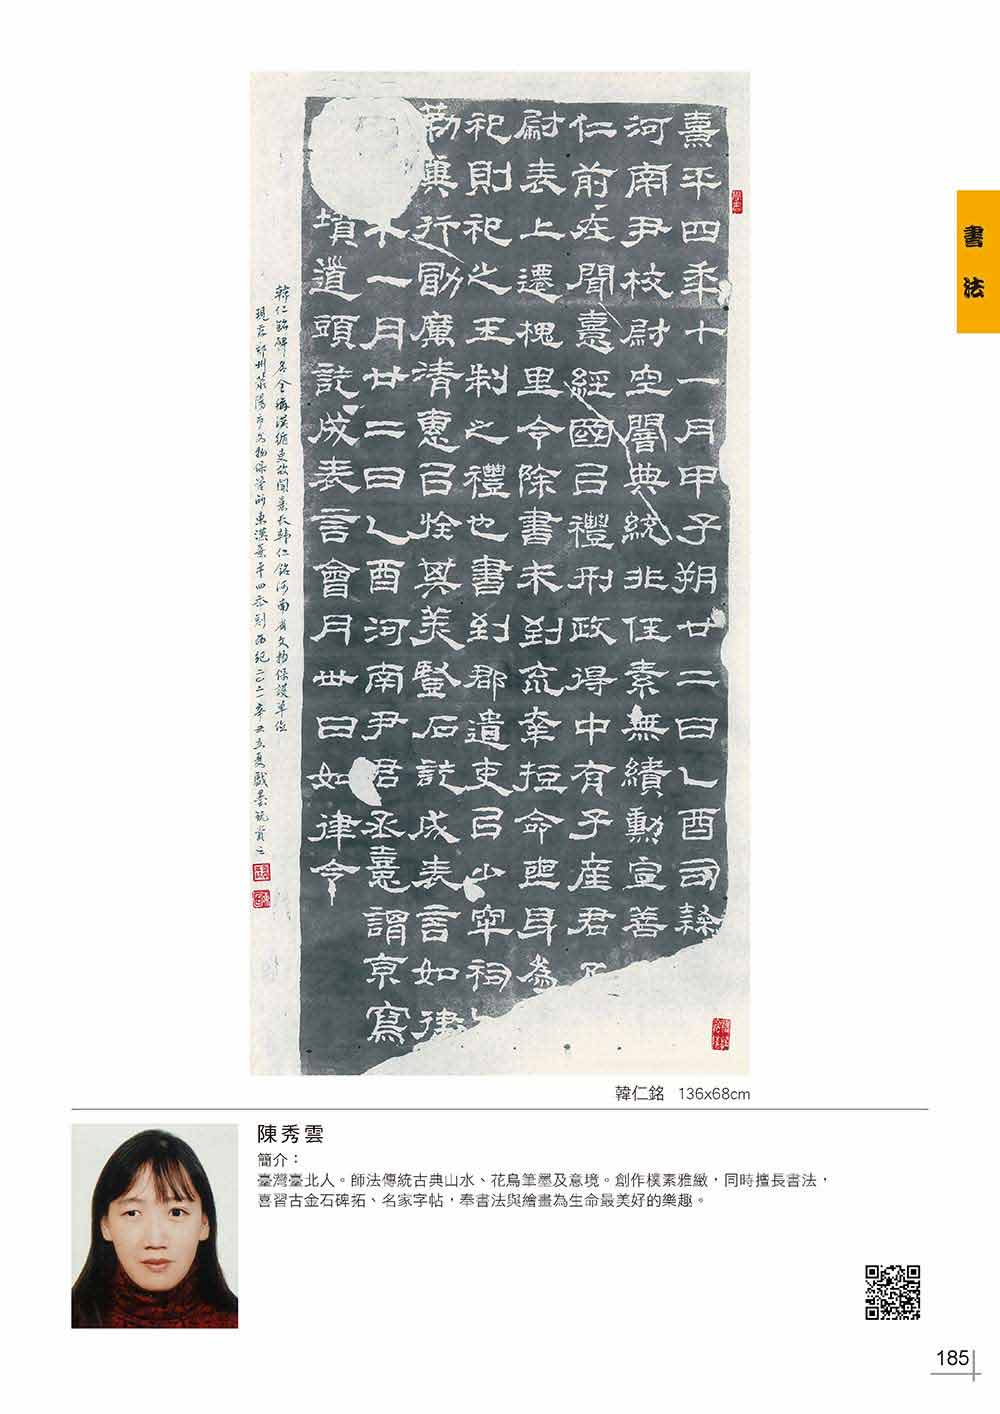 書法
熹平四年十一月甲子朔廿二日乙酉司隸
河南尹校尉空闇典統非任素無績勳宣善
仁前在聞憙經國以禮刑政得中有子產君
尉表上遷槐里令除書未到不幸短命喪身為
祀則祀之王制之禮也書到郡遣吏以少牢祠
勒異行勖厲清惠以旌其美豎石訖成表言如律
一月廿二日乙酉河南尹君丞憙謂京寫
墳道頭訖成表言會月卅日如律令
韓仁銘碑名全稱漢循吏故聞熹長韓仁銘河南省文物保護單位
現存鄭州滎陽市文物保管所東漢熹平四年刻西紀二〇二一辛丑立夏戲墨玩賞之
韓仁銘 136x68cm
陳秀雲
簡介：
臺灣臺北人。師法傳統古典山水、花鳥筆墨及意境。創作樸素雅緻，同時擅長書法，
喜習古金石碑拓、名家字帖，奉書法與繪畫為生命最美好的樂趣。
185